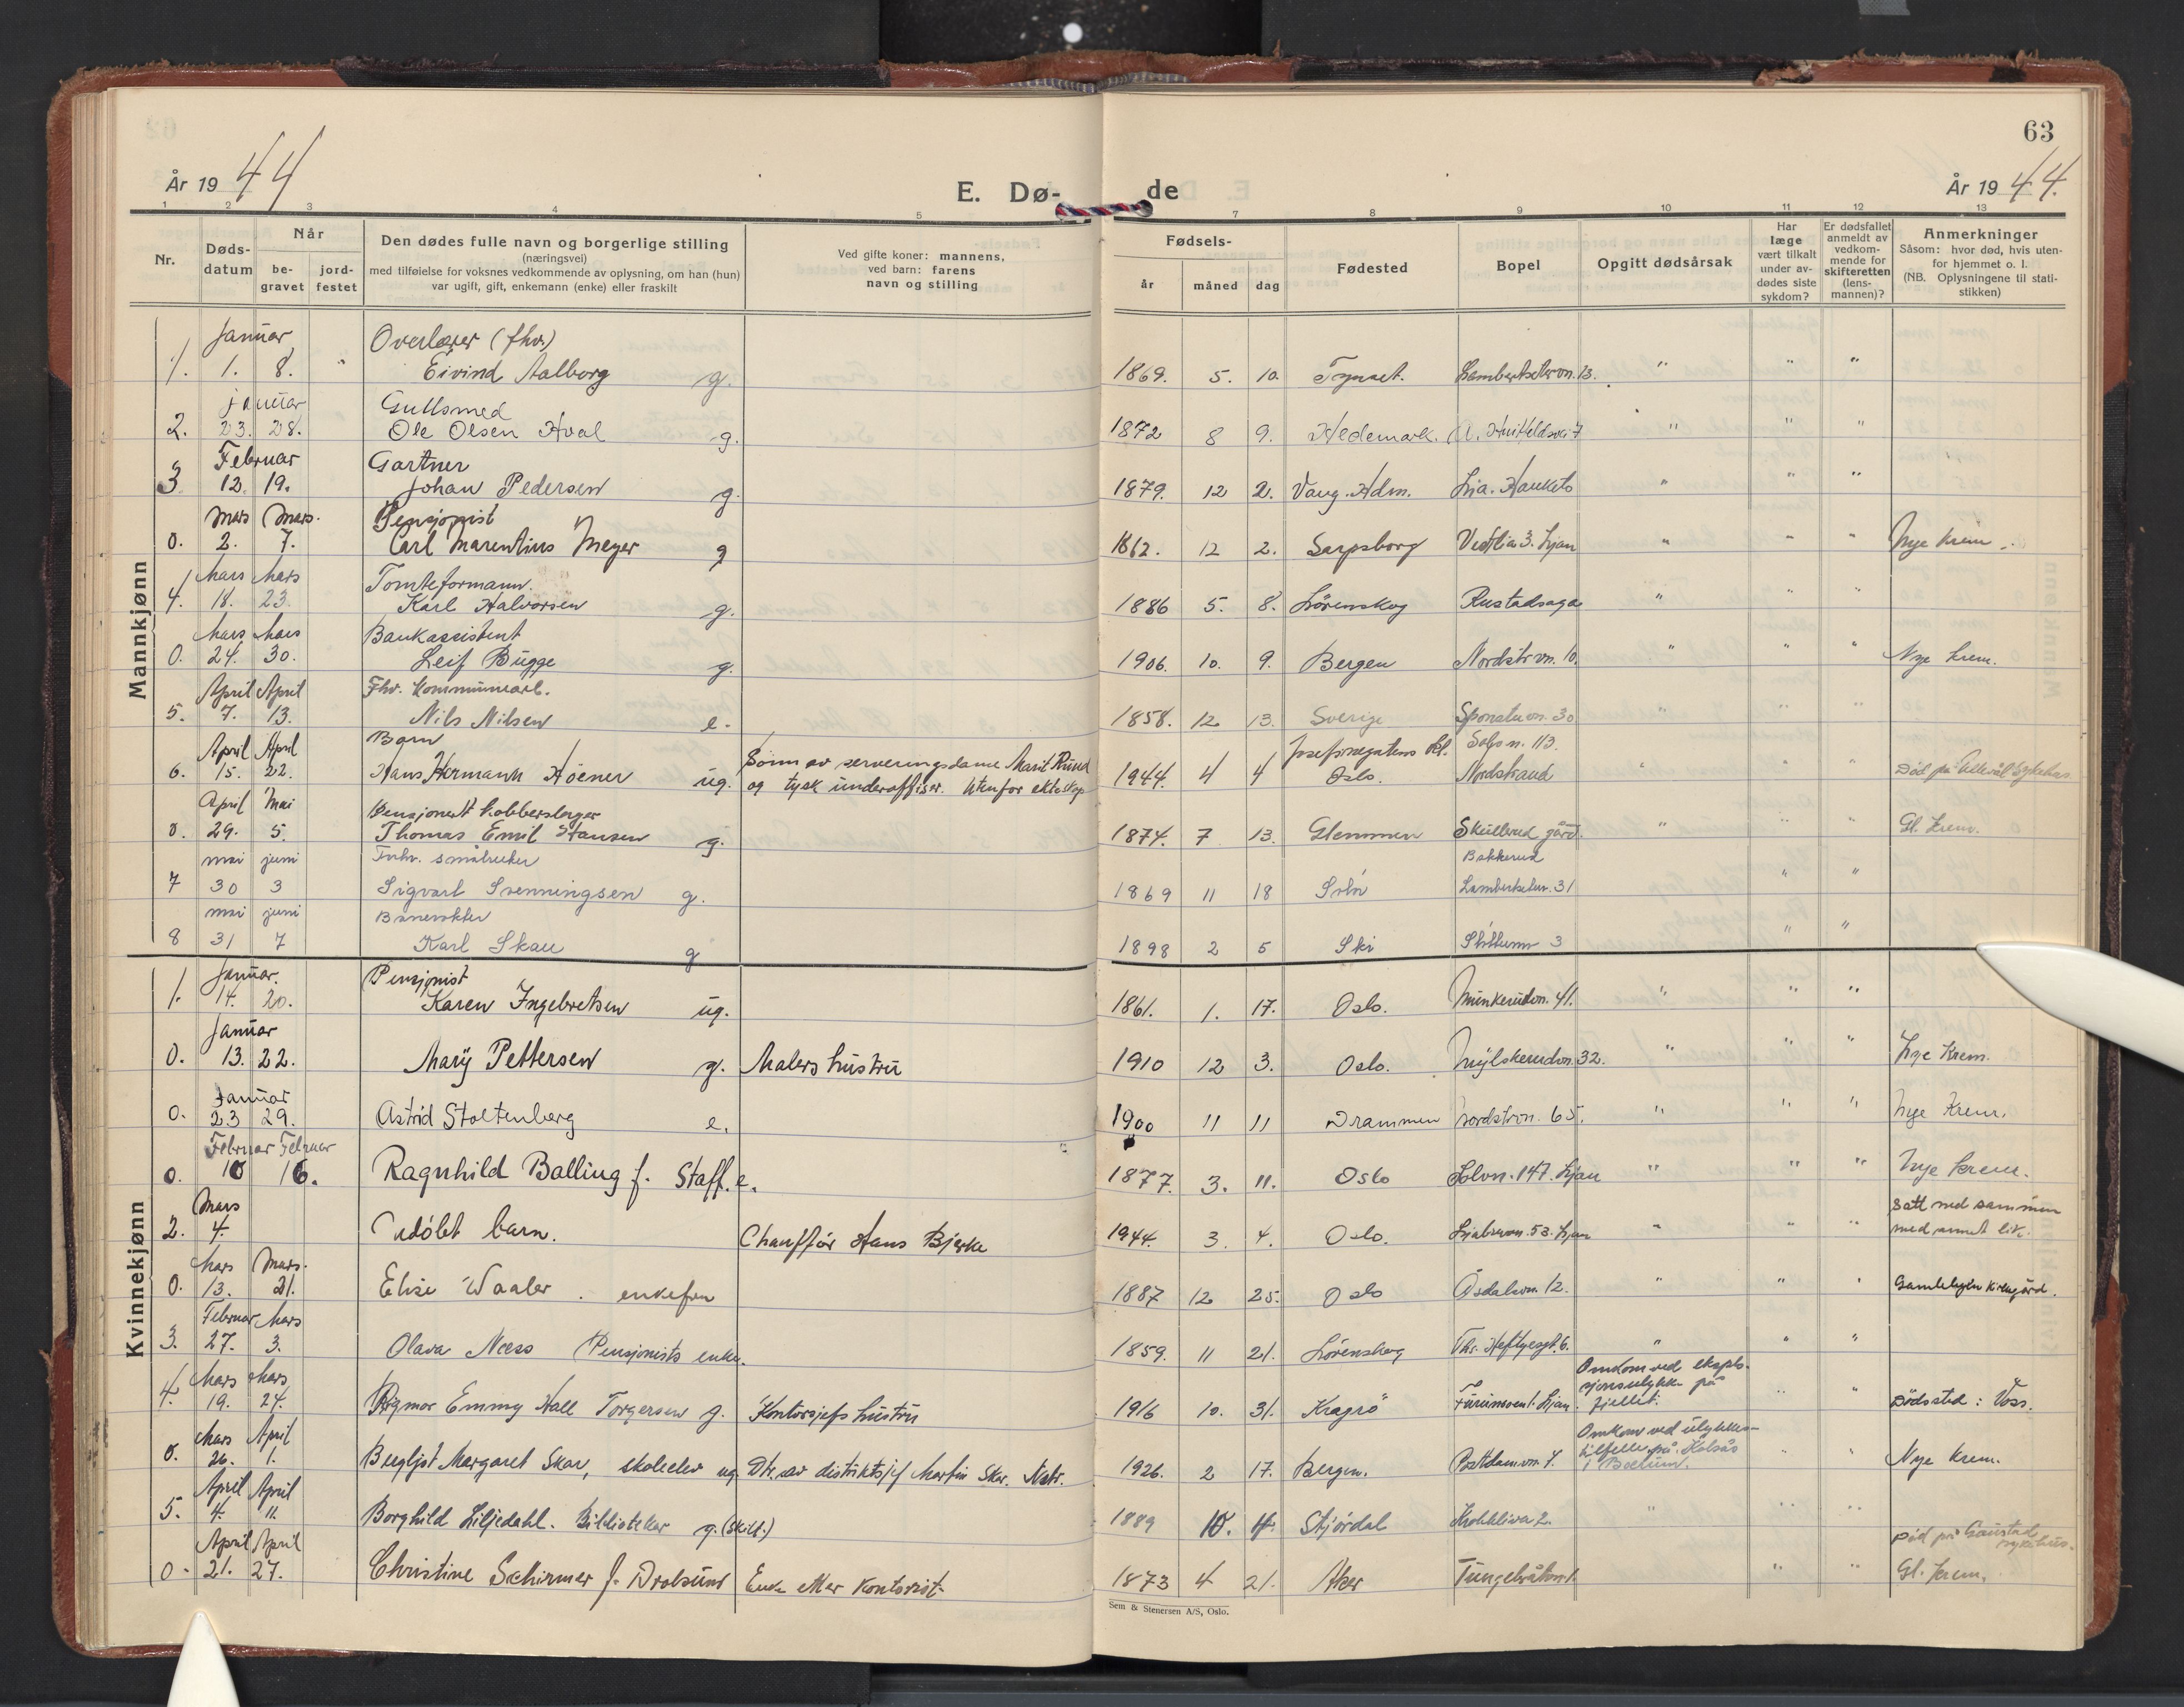 63
År 1944
E. Dø-
de
År 1944.
1 2 3 4 5 7 8 9 10 11 12 13
Nr.
Døds-
datum
Når
be-
gravet
jord-
festet
Den dødes fulle navn og borgerlige stilling
(næringsvei)
med tilføielse for voksnes vedkommende av oplysning, om han (hun)
var ugift, gift, enkemann (enke) eller fraskilt
Ved gifte koner: mannens,
ved barn: farens
navn og stilling
Fødsels-
år måned dag
Fødested
Bopel
Opgitt dødsårsak
Har
læge
vært tilkalt
under av-
dødes siste
sykdom?
Er dødsfallet
anmeldt av
vedkom-
mende for
skifteretten
(lens-
mannen)?
Anmerkninger
Såsom: hvor død, hvis uten-
for hjemmet o. l.
(NB. Oplysningene til stati-
stikken)
Mannkjønn
Januar Overlærer (fhv.)
1. 1. 8. " Eivind Aalborg g. 1869. 5. 10. Tynset. Lambertsetervn. 13. " " "
Januar Gullsmed
2. 23. 28. Ole Olsen Hval g. 1872 8 9. Hedemark. 7 " " "
Februar Gartner
3 12. 19. Johan Pedersen g. 1879. 12 2. Vang. Hdm. Lia. Hauketo " " "
Mars Mars. Pensjonist
0. 2. 7. Carl Marentius Meyer g 1862. 12 2. Sarpsborg Vestlia 3. Ljan " " " Nye Krem.
Mars Mars Tomteformann.
4. 18. 23. Karl Halvorsen g. 1886 5. 8. Lörenskog Rustadsaga " " "
Mars Mars Bankassistent
0. 24. 30. Leif Bugge g. 1906. 10. 9. Bergen Nordstr.vn. 10. " " " Nye krem.
April April Fhv. kommunearb.
5. 7. 13. Nils Nilsen e. 1858. 12 13. Sverige 30 " " "
April April Barn Josefinegatens Solvn. 113.
6. 15. 22. Hans Hermann Höener ug. Sönn av serveringsdame Marit Rund 1944. 4 4 Oslo. Nordstrand " " " Död på Ullevål Sykehus
og tysk underoffiser. Utenfor ekteskap
April Mai Pensjonert kobberslager
0. 29. 5. Thomas Emil Hansen g. 1874. 7 13. Glemmen Skullerud gård. " " " Gl. krem.
mai juni Innh. småbruker Bakkerud
7 30 3 Sigvart Svenningsen g. 1869 11 18 Solör Lambertseterv. 31 " "
mai juni Banevokter
8 31 7 Karl Skau g 1898 2 5 Ski 3 " "
Kvinnekjønn
Januar. Pensjonist
1. 14. 20. Karen Ingebretsen ug. 1861. 1. 17. Oslo. Munkerudvn. 41. " " "
Januar
0. 13. 22. Mary Pettersen g. Malers hustru 1910 12 3. Oslo. 32. " " " Nye Krem.
Januar
0. 23 29. Astrid Stoltenberg e. 1900 11 11 Drammen Nordstrvn. 65. " " " Nye Krem.
Februar Februar
0. 10 16. Ragnhild Balling f. Staff. e. 1877. 3. 11. Oslo Solvn. 147. Ljan " " " Nye krem.
Mars Satt ned sammen
2. 4. Udöbt barn. Chaufför Hans Bjerke 1944. 3. 4. Oslo. Ljabruvn. 53. Ljan " " " med annet lik.
Mars Mars.
0. 13. 21. Elise Waaler. enkefru 1887 12 25. Oslo Åsdalsvn. 12. " " " Gamlebyen kirkegård.
Februar Mars
3. 27. 3. Olava Næss Pensjonists enke. 1859. 11 21. Th. Heftyesgt. 6. " " "
Mars Mars Omkom ved eksplo-
sjonsulykke på
4. 19. 24. Rigmor Emmy Hall Torgersen g. Kontorsjefs hustru 1916 10. 31. Kragrö Ljan. fjellet. " " Dödssted: Voss.
Mars April Omkom ved ulykkes-
tilfelle på Kolsås
0. 26. 1. Bergljot Margaret Skar, skoleelev ug. Dtr. av distriktssjef Martin Skar. Nstr. 1926. 2 17. Bergen. 4. i Bærum. " " Nye Krem.
April April
5. 4. 11. Borghild Liljedahl. Bibliotekar g. (skilt.) 1889 10. 4. Stjördal 2. " " "
April April Död på Gaustad
sykehus.
0. 21. 27. Christine Schirmer f. Drolsum Enke etter kontorist. 1873 4 21. Aker " " Gl. krem.
Sem & Stenersen A/S, Oslo.